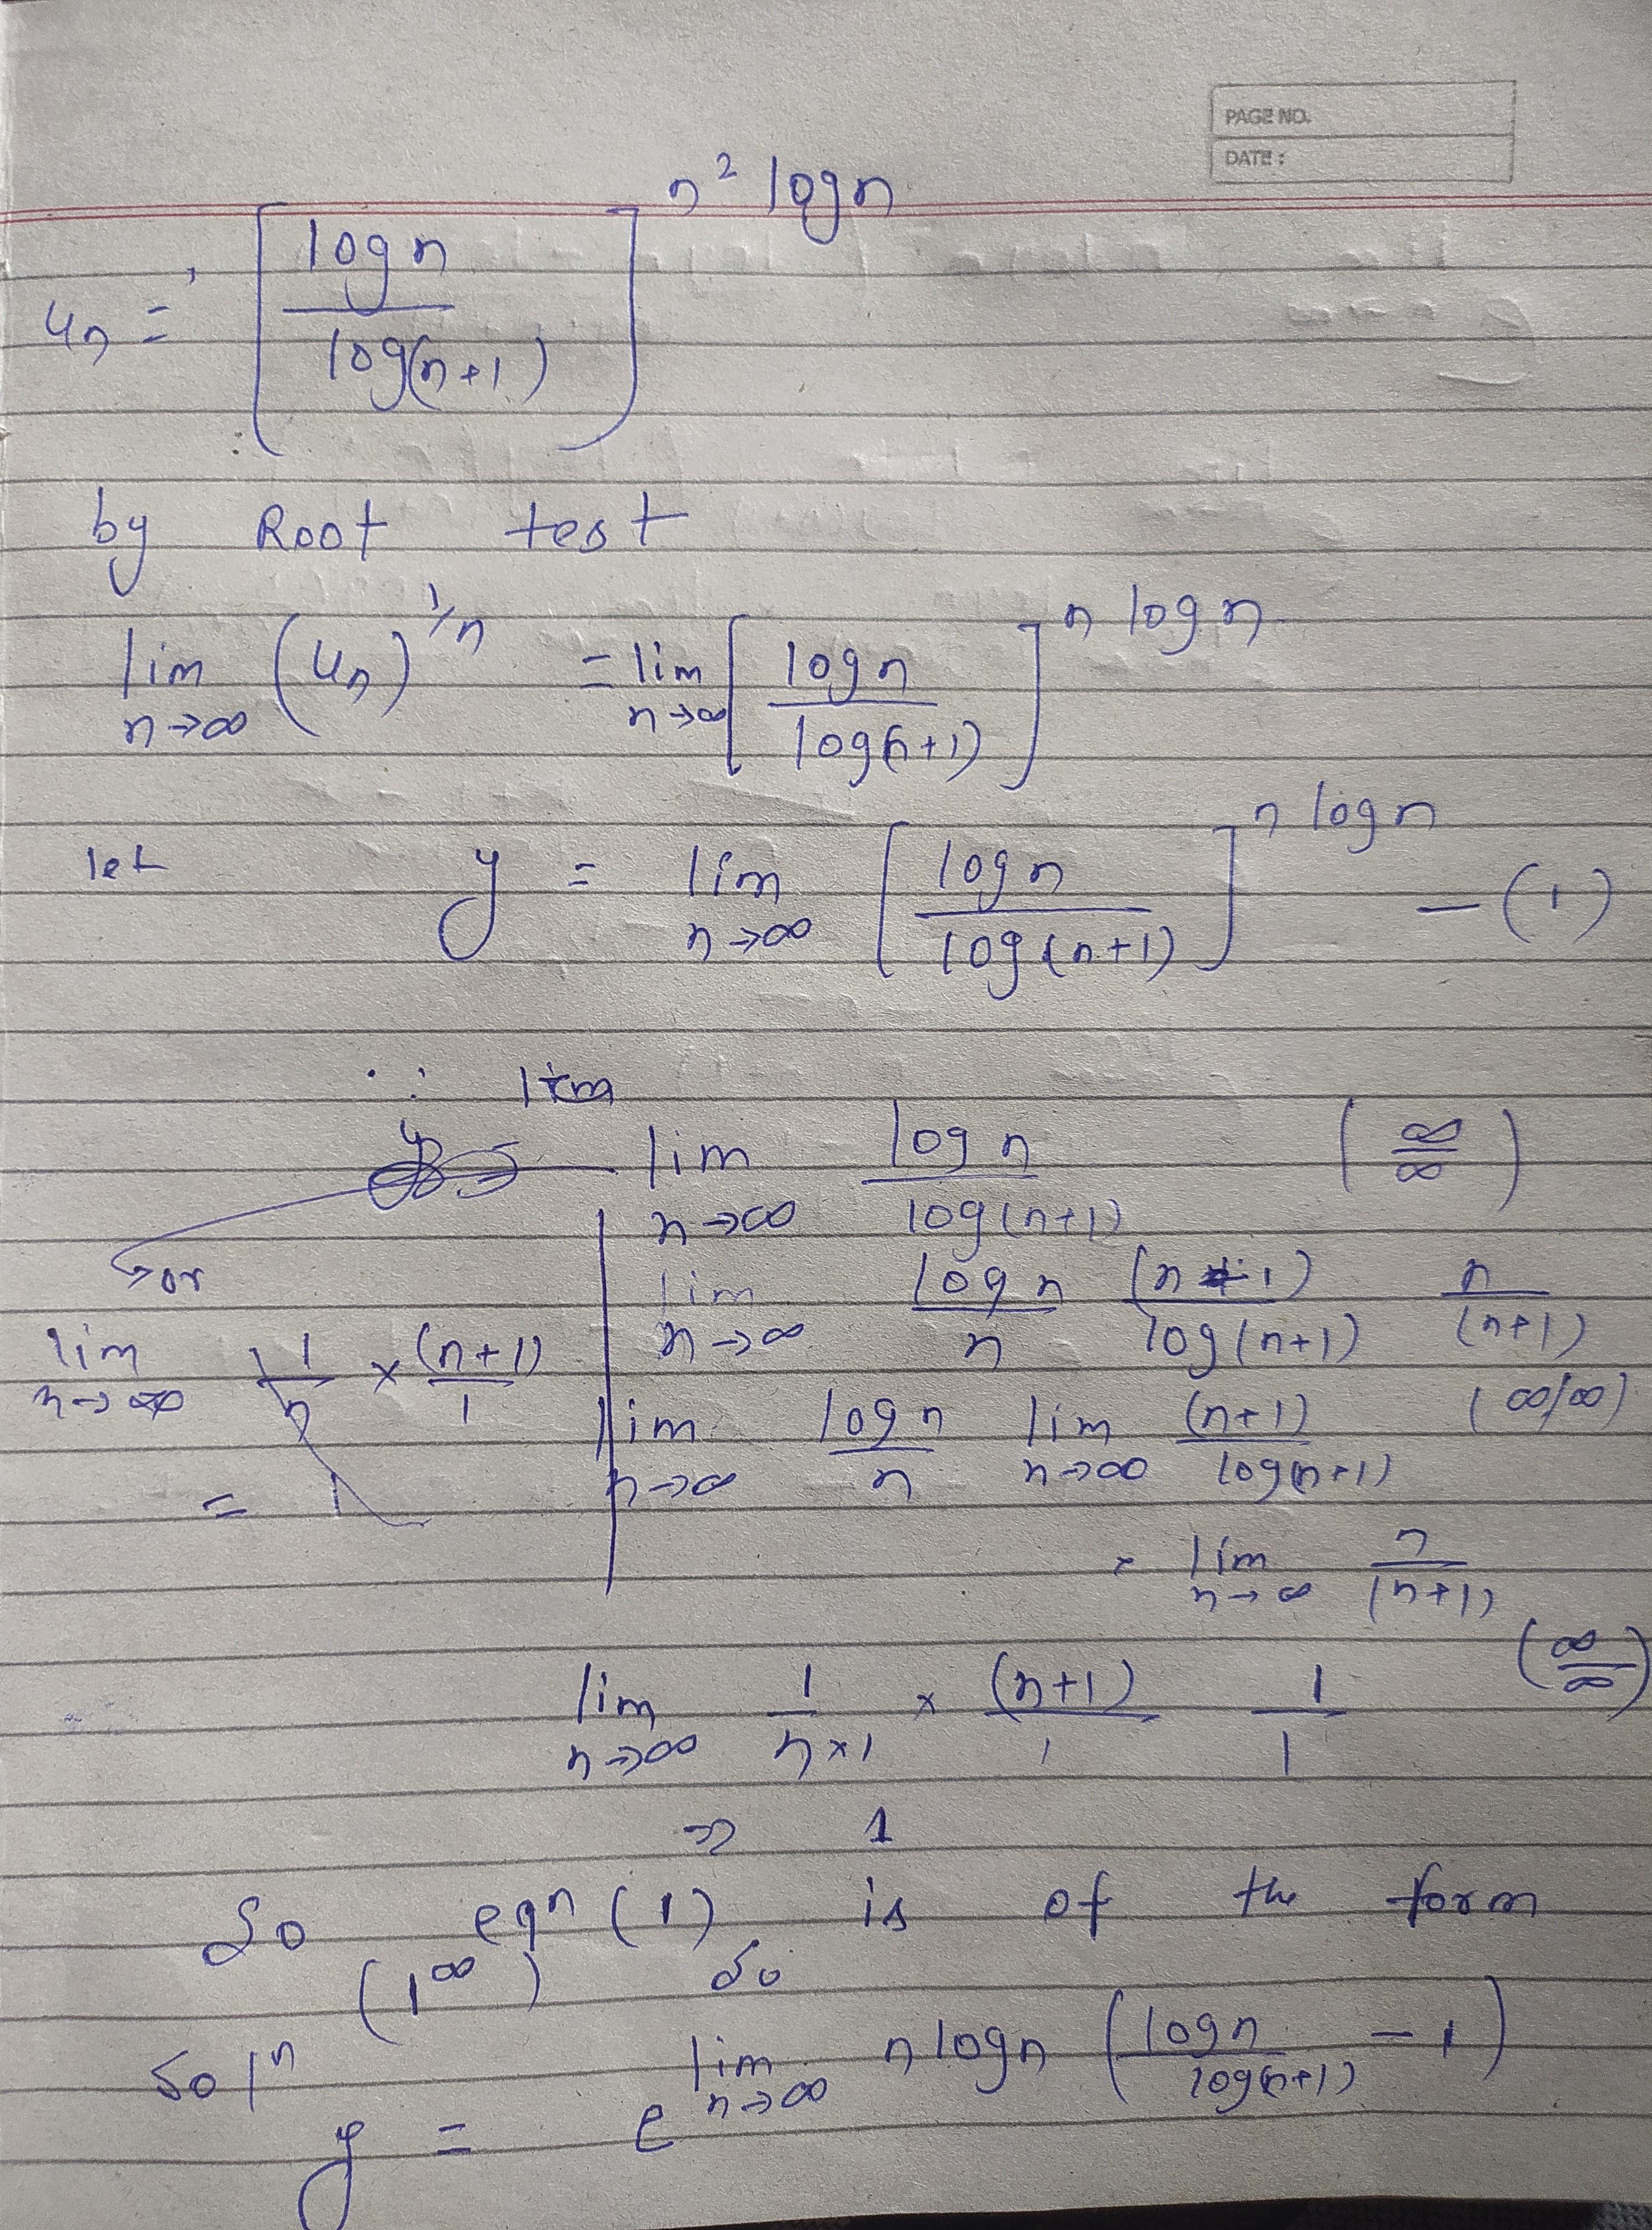 PAGE NO.
DATE :
u_n = [log n / log(n+1)]^(n² log n)
by Root test
lim n→∞ (u_n)^(1/n) = lim n→∞ [log n / log(n+1)]^(n log n)
let y = lim n→∞ [log n / log(n+1)]^(n log n) — (1)
∵ lim
lim n→∞ log n / log(n+1) (∞/∞)
or
lim n→∞ 1/n × (n+1)/1
= 1
lim n→∞ log n / n (n+1) / log(n+1) n / (n+1)
lim n→∞ log n / n lim n→∞ (n+1) / log(n+1) (∞/∞)
× lim n→∞ n / (n+1)
(∞/∞)
lim n→∞ 1 / n×1 × (n+1)/1 1/1
⇒ 1
So eqn (1) is of the form
(1^∞) So
Sol^n
y = e^(lim n→∞ n log n (log n / log(n+1) − 1))